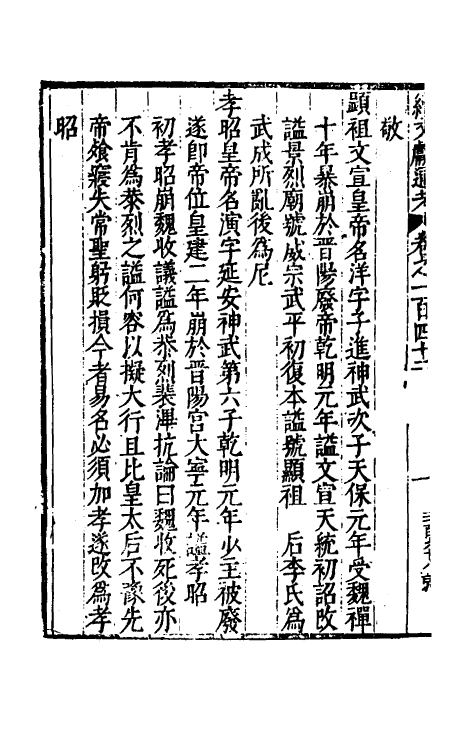 續文獻通考 卷之一百四十三
敬
顯祖文宣皇帝名洋字子進神武次子天保元年受魏禪
十年暴崩於晋陽廢帝乾明元年諡文宣天統初詔改
諡景烈廟號威宗武平初復本諡號顯祖 后李氏爲
武成所亂後爲尼
孝昭皇帝名演字延安神武第六子乾明元年少主被廢
遂即帝位皇建二年崩於晋陽宮大寧元年諡孝昭
初孝昭崩魏收議諡爲恭烈裴澤抗論曰魏收死後亦
不肯爲恭烈之諡何容以擬大行且比皇太后不豫先
帝飱寢失常聖躬貶損今者易名必須加孝遂改爲孝
昭